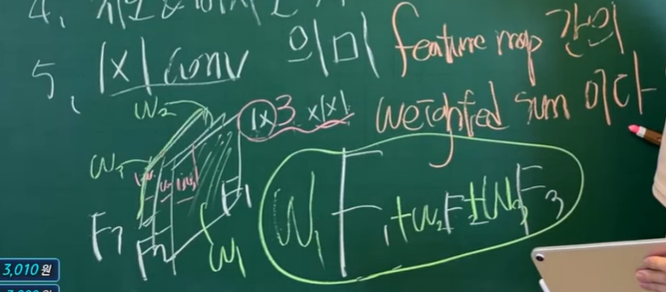 4.
5. 1x1 conv 의미 feature map 간의
weighted sum 이다
1x3x1x1
W2
W3
F3 F2 F1
W1
W1F1+W2F2+W3F3
3,010원